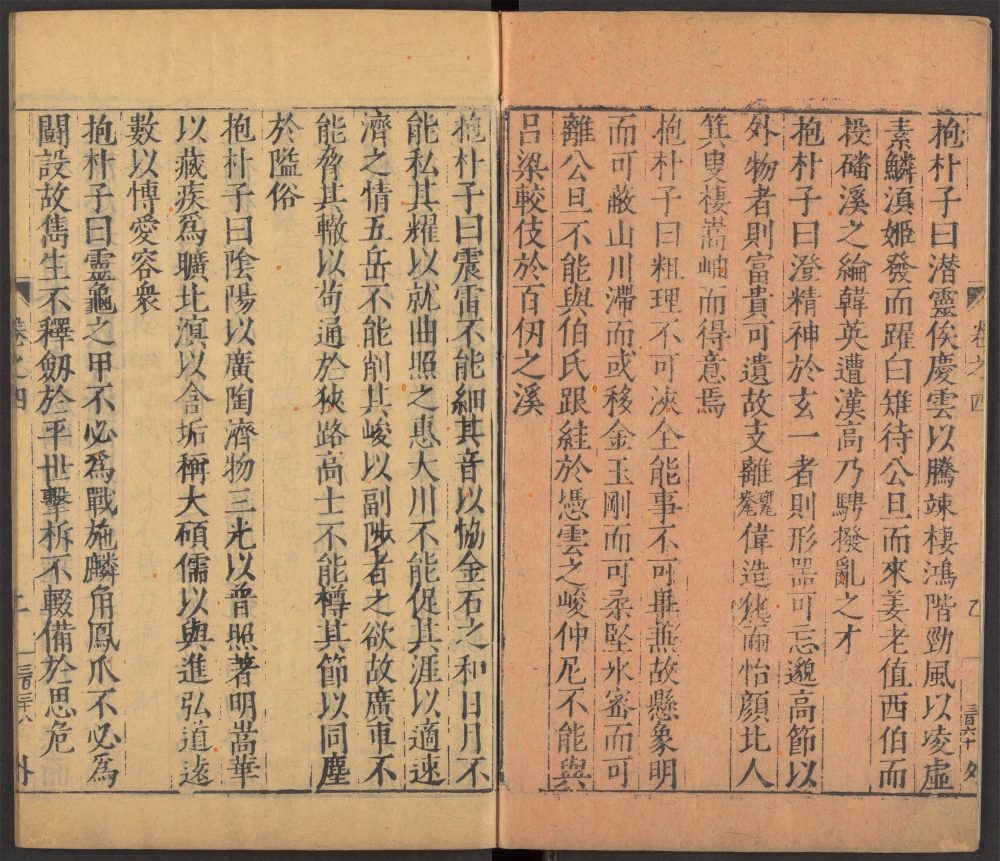 抱朴子曰潛靈俟慶雲以騰竦棲鴻階勁風以凌虛
素鱗滇姬發而躍白雉待公旦而來姜老值西伯而
投磻溪之綸韓英遭漢高乃騁撥亂之才
抱朴子曰澄精神於玄一者則形器可忘邈高節以
外物者則富貴可遺故支離偉造而怡顏北人
箕叟棲嵩岫而得意焉
抱朴子曰粗理不可浹全能事不可畢兼故懸象明
而可蔽山川滯而或移金玉剛而可柔堅氷密而可
離公旦不能與伯氏跟絓於憑雲之峻仲尼不能與
呂梁較伎於百仞之溪
卷之四
乙
抱朴子曰震雷不能細其音以恊金石之和日月不
能私其耀以就曲照之惠大川不能促其涯以適速
濟之情五岳不能削其峻以副陟者之欲故廣車不
能脅其轍以苟通於狹路高士不能撙其節以同塵
於隘俗
抱朴子曰陰陽以廣陶濟物三光以普照著明嵩華
以藏疾爲曠北溟以含垢稱大碩儒以與進弘道遠
數以愽愛容衆
抱朴子曰靈龜之甲不必爲戰施麟角鳳爪不必爲
鬭設故雋生不釋劒於平世擊柝不輟備於思危
卷之四